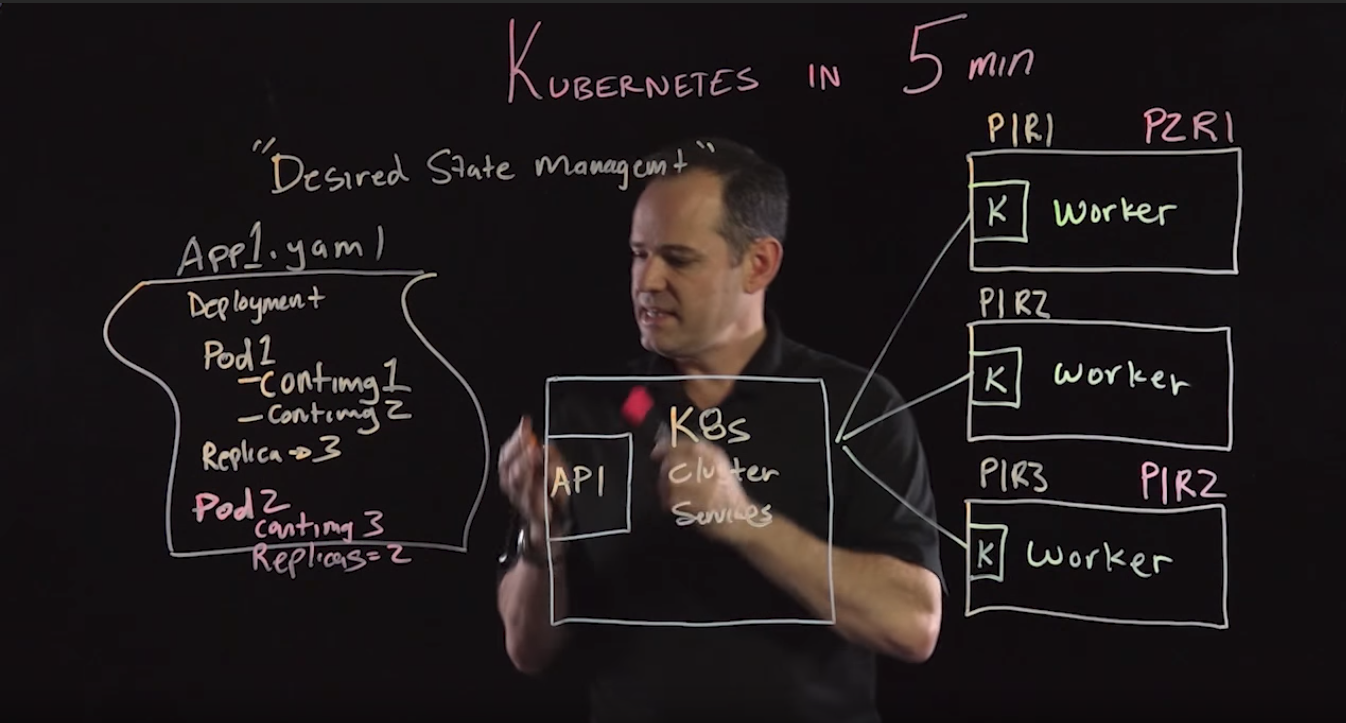 KUBERNETES IN 5 min
"Desired State Managemt"
App1.yaml
Deployment
Pod1
- contimg1
- contimg 2
Replica → 3
Pod2
contimg 3
Replicas = 2
API
K8s
Cluster
Services
P1R1 P2R1
K Worker
P1R2
K Worker
P1R3 P1R2
K Worker